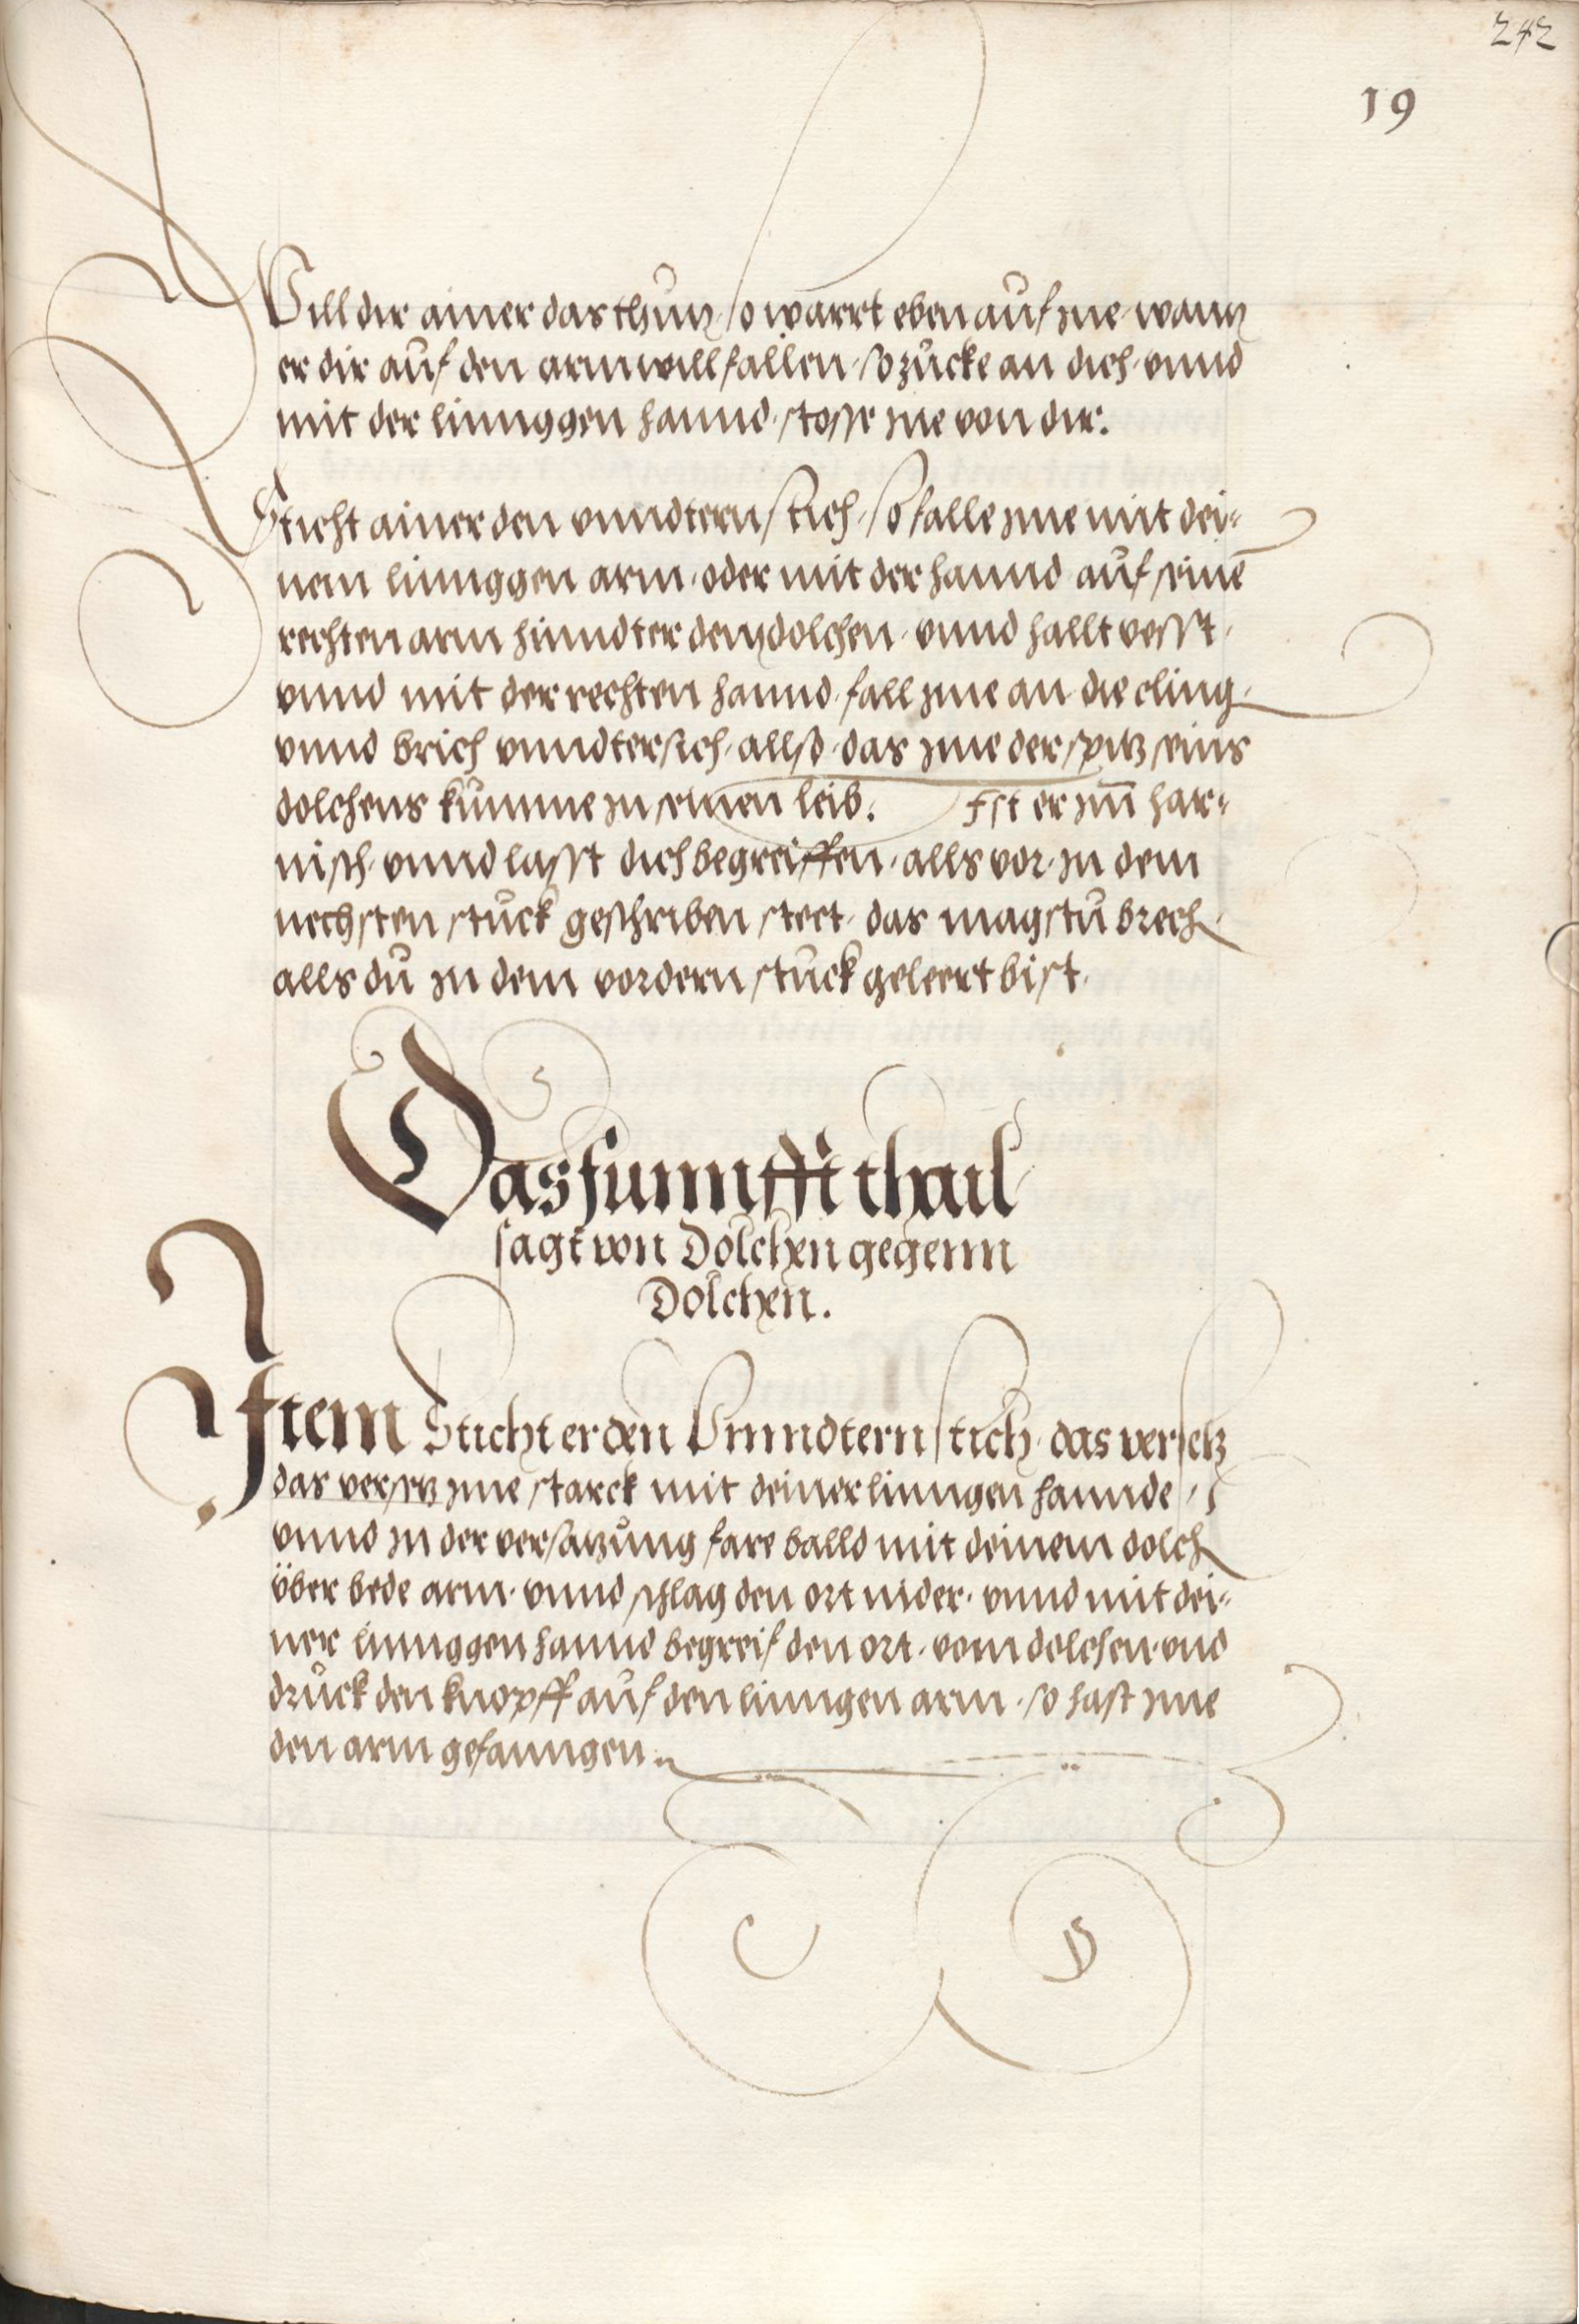 242
19
Will dir ainer das thun, so wartt eben auf jne, wann
er dir auf den arm will fallen, so zucke an dich, vnnd
mit der linnggen hannd, stosse jne von dir.
Sticht ainer den vnndtern stich, so falle jme mit dei-
nem linnggen arm, oder mit der hannd auf seinē
rechten arm hinndter dem dolchen, vnnd hallt vesst,
vnnd mit der rechten hannd, fall jme an die cling,
vnnd brich vnndtersich, allso, das jme der spitz seins
dolchens kumme jn seinen leib. Ist er jm̄ har-
nisch, vnnd lasst dich begreiffen, alls vor, jn dem
nechsten stuck geschriben steet, das magstu brech
alls du jn dem vordern stuck geleert bist.
Das funnfft thail
sagt von Dolchen gegenn
Dolchen.
Item Sticht er den Vnndtern stich, das versetz
das versetz jme starck mit deiner linngen hannde,
vnnd jn der versatzung fare balld mit deinem dolch
über bede arm, vnnd schlag den ort nider, vnnd mit dei-
ner linnggen hannd begreif den ort, vom dolchen, vnd
druck den knopff auf den linngen arm, so hast jme
den arm gefanngen.